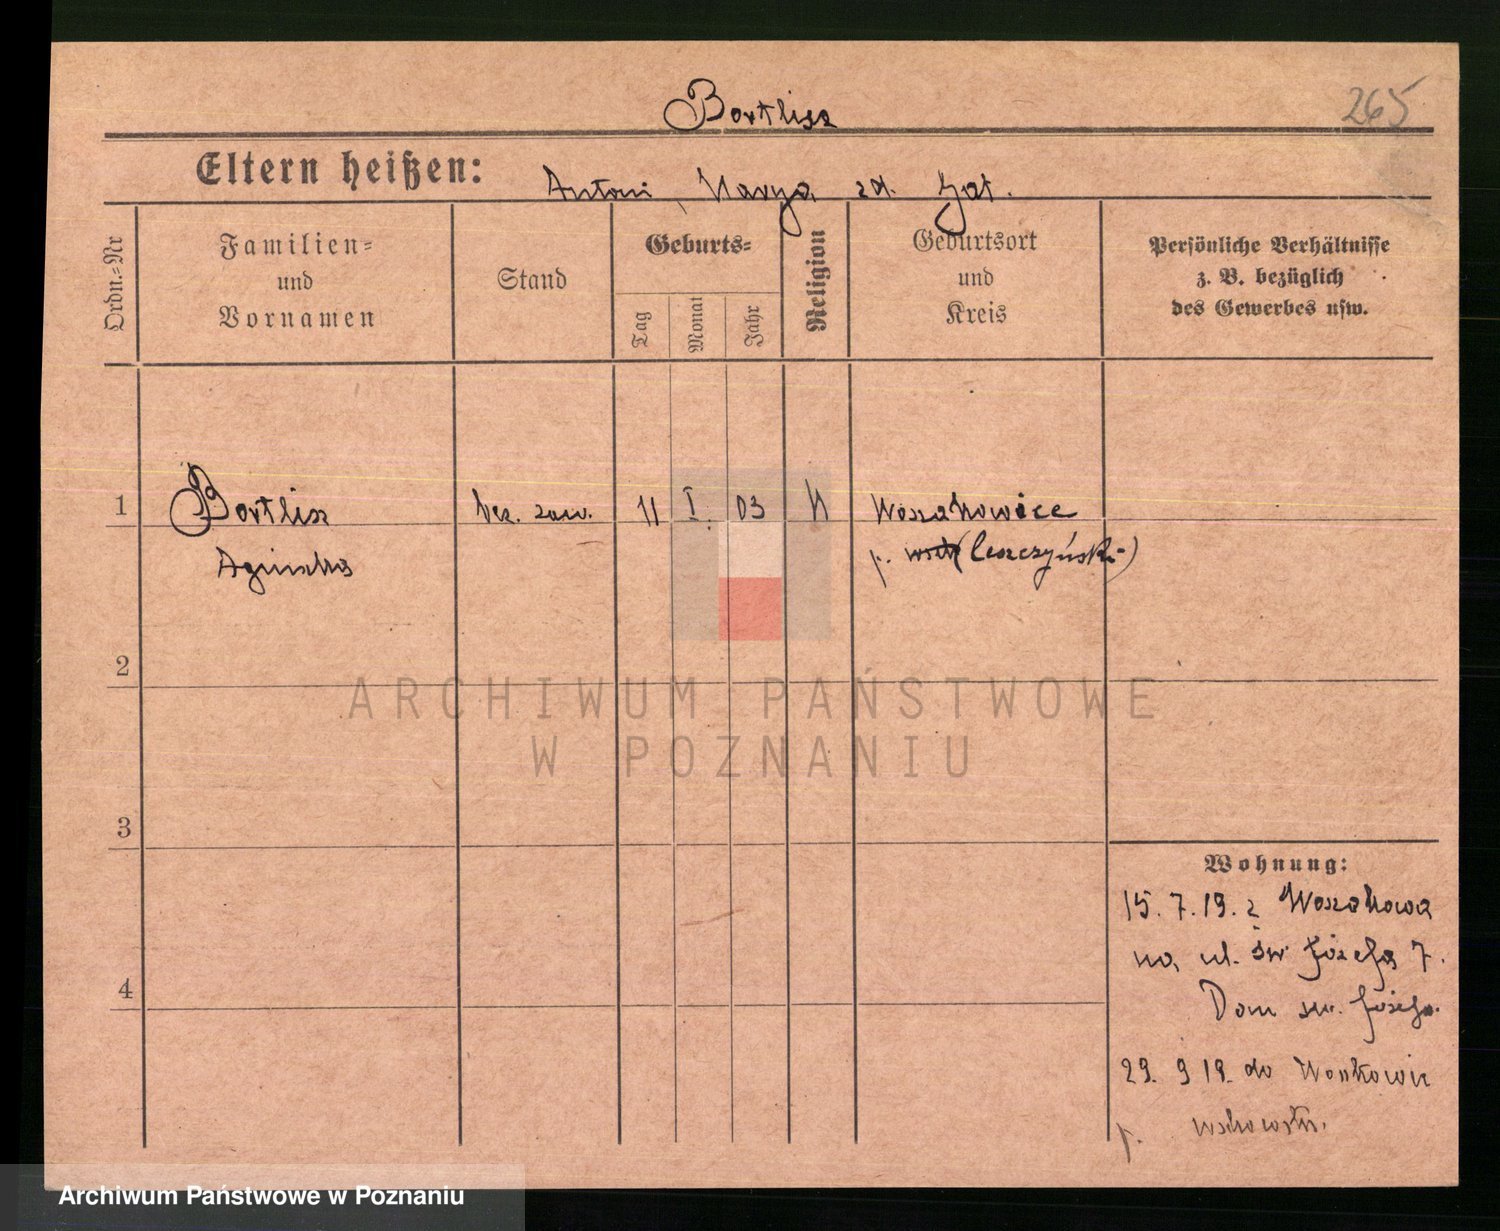 Bortlisz
265
Eltern heißen: Antoni, Marya zd. Gał.
Ordn.=Nr
Familien=
und
Vornamen
Stand
Geburts=
Tag
Monat
Jahr
Religion
Geburtsort
und
Kreis
Persönliche Verhältnisse
z. B. bezüglich
des Gewerbes usw.
1
Bortlisz
Agnieszka
bez. zaw.
11
I.
03
K
p. (leszczyński)
2
3
4
Wohnung:
15. 7. 19. z
na ul. św Józefa 7.
Dom św. Józefa.
29. 9 19. do
p. wschowski.
ARCHIWUM PAŃSTWOWE
W POZNANIU
Archiwum Państwowe w Poznaniu